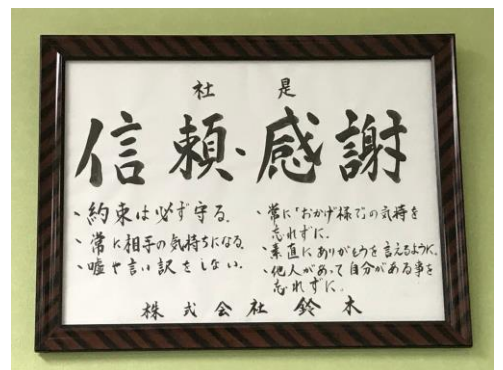 社是
信頼・感謝
・約束は必ず守る。
・常に相手の気持ちになる。
・嘘や言い訳をしない。
・常に「おかげ様で」の気持を
忘れずに。
・素直にありがとうを言えるように。
・他人があって自分がある事を
忘れずに。
株式会社鈴木